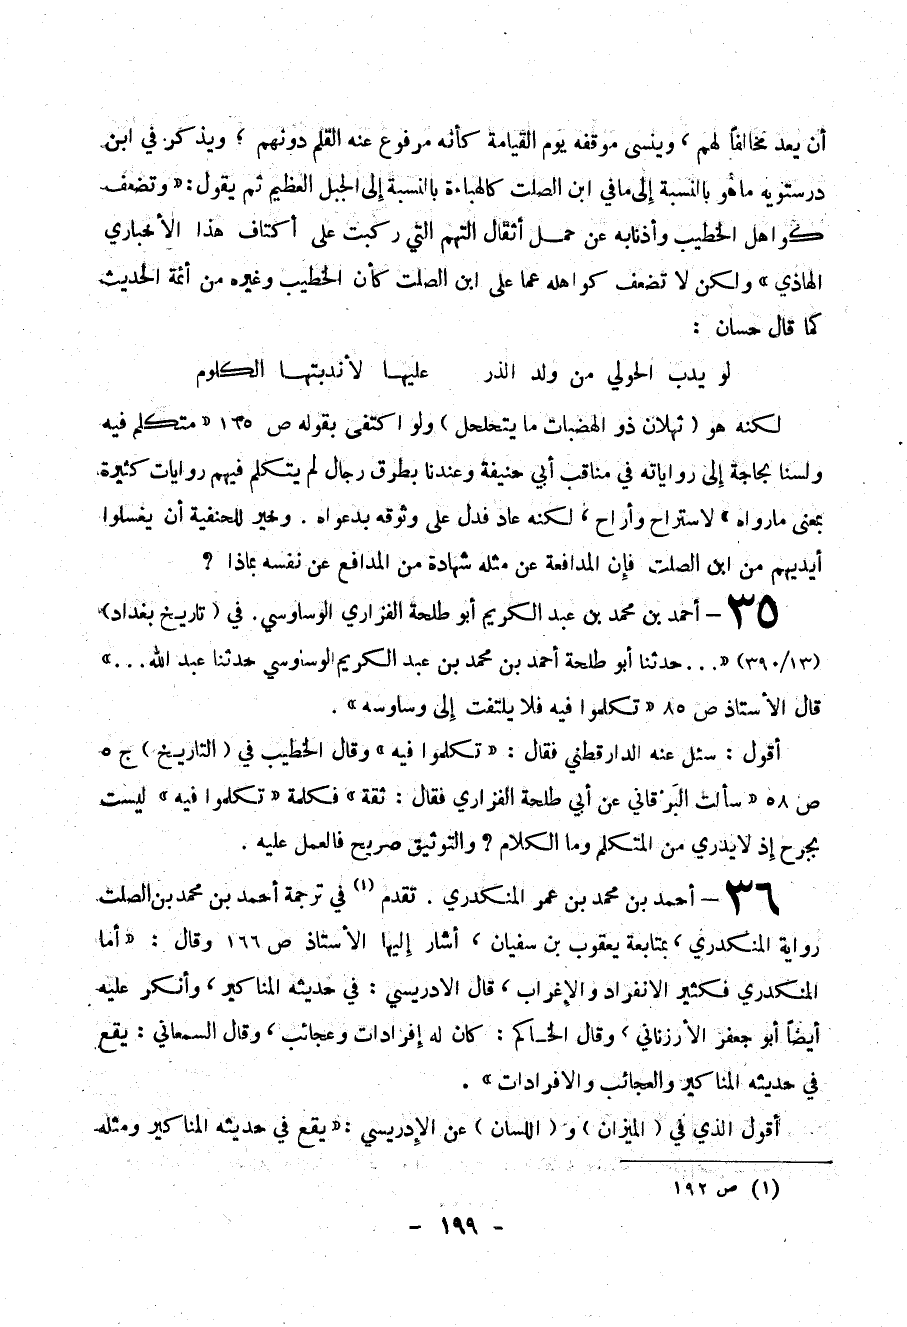 أن يعد مخالفاً لهم ، وينسى موقفه يوم القيامة كأنه مرفوع عنه القلم دونهم ؛ ويذكر في ابن
درستويه ماهو بالنسبة إلى مافي ابن الصلت كالهباءة بالنسبة إلى الجبل العظيم ثم يقول : « وتضعف
كواهل الخطيب وأذنابه عن حمل أثقال التهم التي ركبت على أكتاف هذا الأخباري
الهاذي » ولكن لا تضعف كواهله عما على ابن الصلت كأن الخطيب وغيره من أئمة الحديث
كما قال حسان :
لو يدب الحولي من ولد الذر عليها لأندبتها الكلوم
لكنه هو ( ثهلان ذو الهضبات ما يتحلحل ) ولو اكتفى بقوله ص ١٣٥ « متكلم فيه
ولسنا بحاجة إلى رواياته في مناقب أبي حنيفة وعندنا بطرق رجال لم يتكلم فيهم روايات كثيرة
بمعنى مارواه » لاستراح وأراح ، لكنه عاد فدل على وثوقه بدعواه . وخير للحنفية أن يغسلوا
أيديهم من ابن الصلت فإن المدافعة عن مثله شهادة من المدافع عن نفسه بماذا ؟
٣٥ – أحمد بن محمد بن عبد الكريم أبو طلحة الفزاري الوساوسي . في ( تاريخ بغداد )
(٣٩٠/١٣) « . . . حدثنا أبو طلحة أحمد بن محمد بن عبد الكريم الوساوسي حدثنا عبد الله . . . »
قال الأستاذ ص ٨٥ « تكلموا فيه فلا يلتفت إلى وساوسه » .
أقول : سئل عنه الدارقطني فقال : « تكلموا فيه » وقال الخطيب في ( التاريخ ) ج ٥
ص ٥٨ « سألت البَرْقاني عن أبي طلحة الفزاري فقال : ثقة » فكلمة « تكلموا فيه » ليست
بجرح إذ لايدري من المتكلم وما الكلام ؟ والتوثيق صريح فالعمل عليه .
٣٦ – أحمد بن محمد بن عمر المنكدري . تقدم (١) في ترجمة أحمد بن محمد بن الصلت
رواية المنكدري ، بمتابعة يعقوب بن سفيان ، أشار إليها الأستاذ ص ١٦٦ وقال : « أما
المنكدري فكثير الانفراد والإغراب ، قال الادريسي : في حديثه المناكير ، وأنكر عليه
أيضاً أبو جعفر الأرزناني ، وقال الحاكم : كان له إفرادات وعجائب ، وقال السمعاني : يقع
في حديثه المناكير والعجائب والافرادات » .
أقول الذي في ( الميزان ) و ( اللسان ) عن الإدريسي : « يقع في حديثه المناكير ومثله
(١) ص ١٩٢
- ١٩٩ -